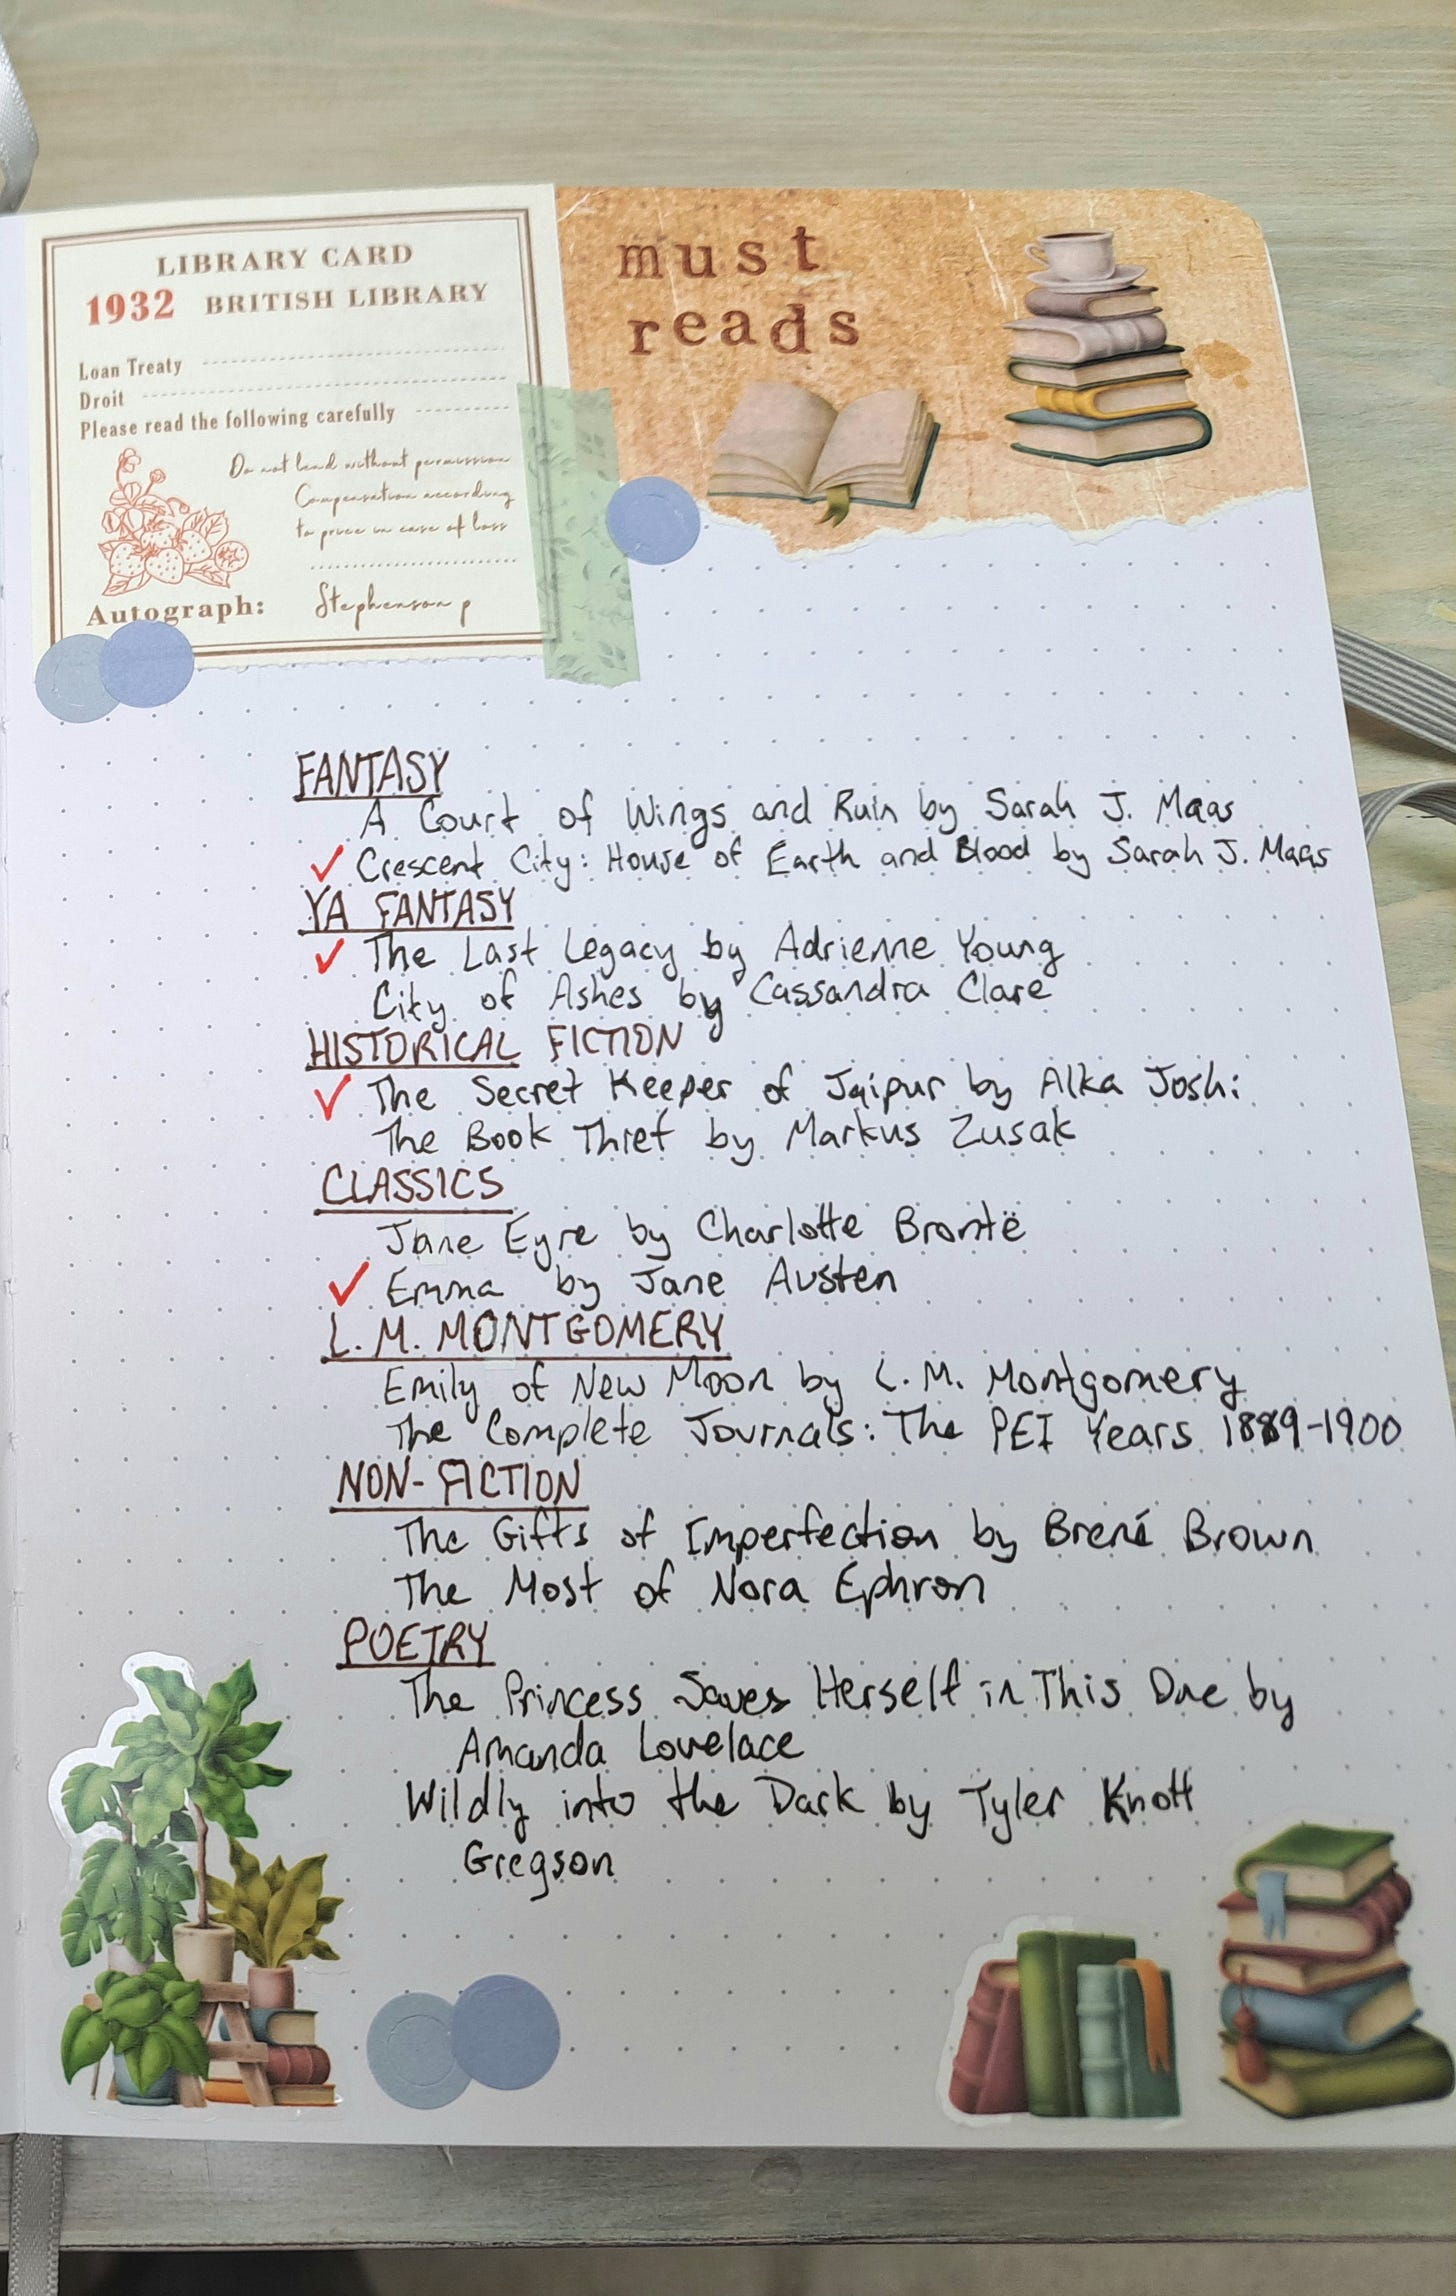 LIBRARY CARD
1932 BRITISH LIBRARY
Loan Treaty
Droit
Please read the following carefully
Do not lend without permission
Compensation according
to price in case of loss
Autograph: Stephenson p
must
reads
FANTASY
A Court of Wings and Ruin by Sarah J. Maas
✓ Crescent City: House of Earth and Blood by Sarah J. Maas
YA FANTASY
✓ The Last Legacy by Adrienne Young
City of Ashes by Cassandra Clare
HISTORICAL FICTION
✓ The Secret Keeper of Jaipur by Alka Joshi
The Book Thief by Markus Zusak
CLASSICS
Jane Eyre by Charlotte Brontë
✓ Emma by Jane Austen
L.M. MONTGOMERY
Emily of New Moon by L.M. Montgomery
The Complete Journals: The PEI Years 1889-1900
NON-FICTION
The Gifts of Imperfection by Brené Brown
The Most of Nora Ephron
POETRY
The Princess Saves Herself in This One by
Amanda Lovelace
Wildly into the Dark by Tyler Knott
Gregson